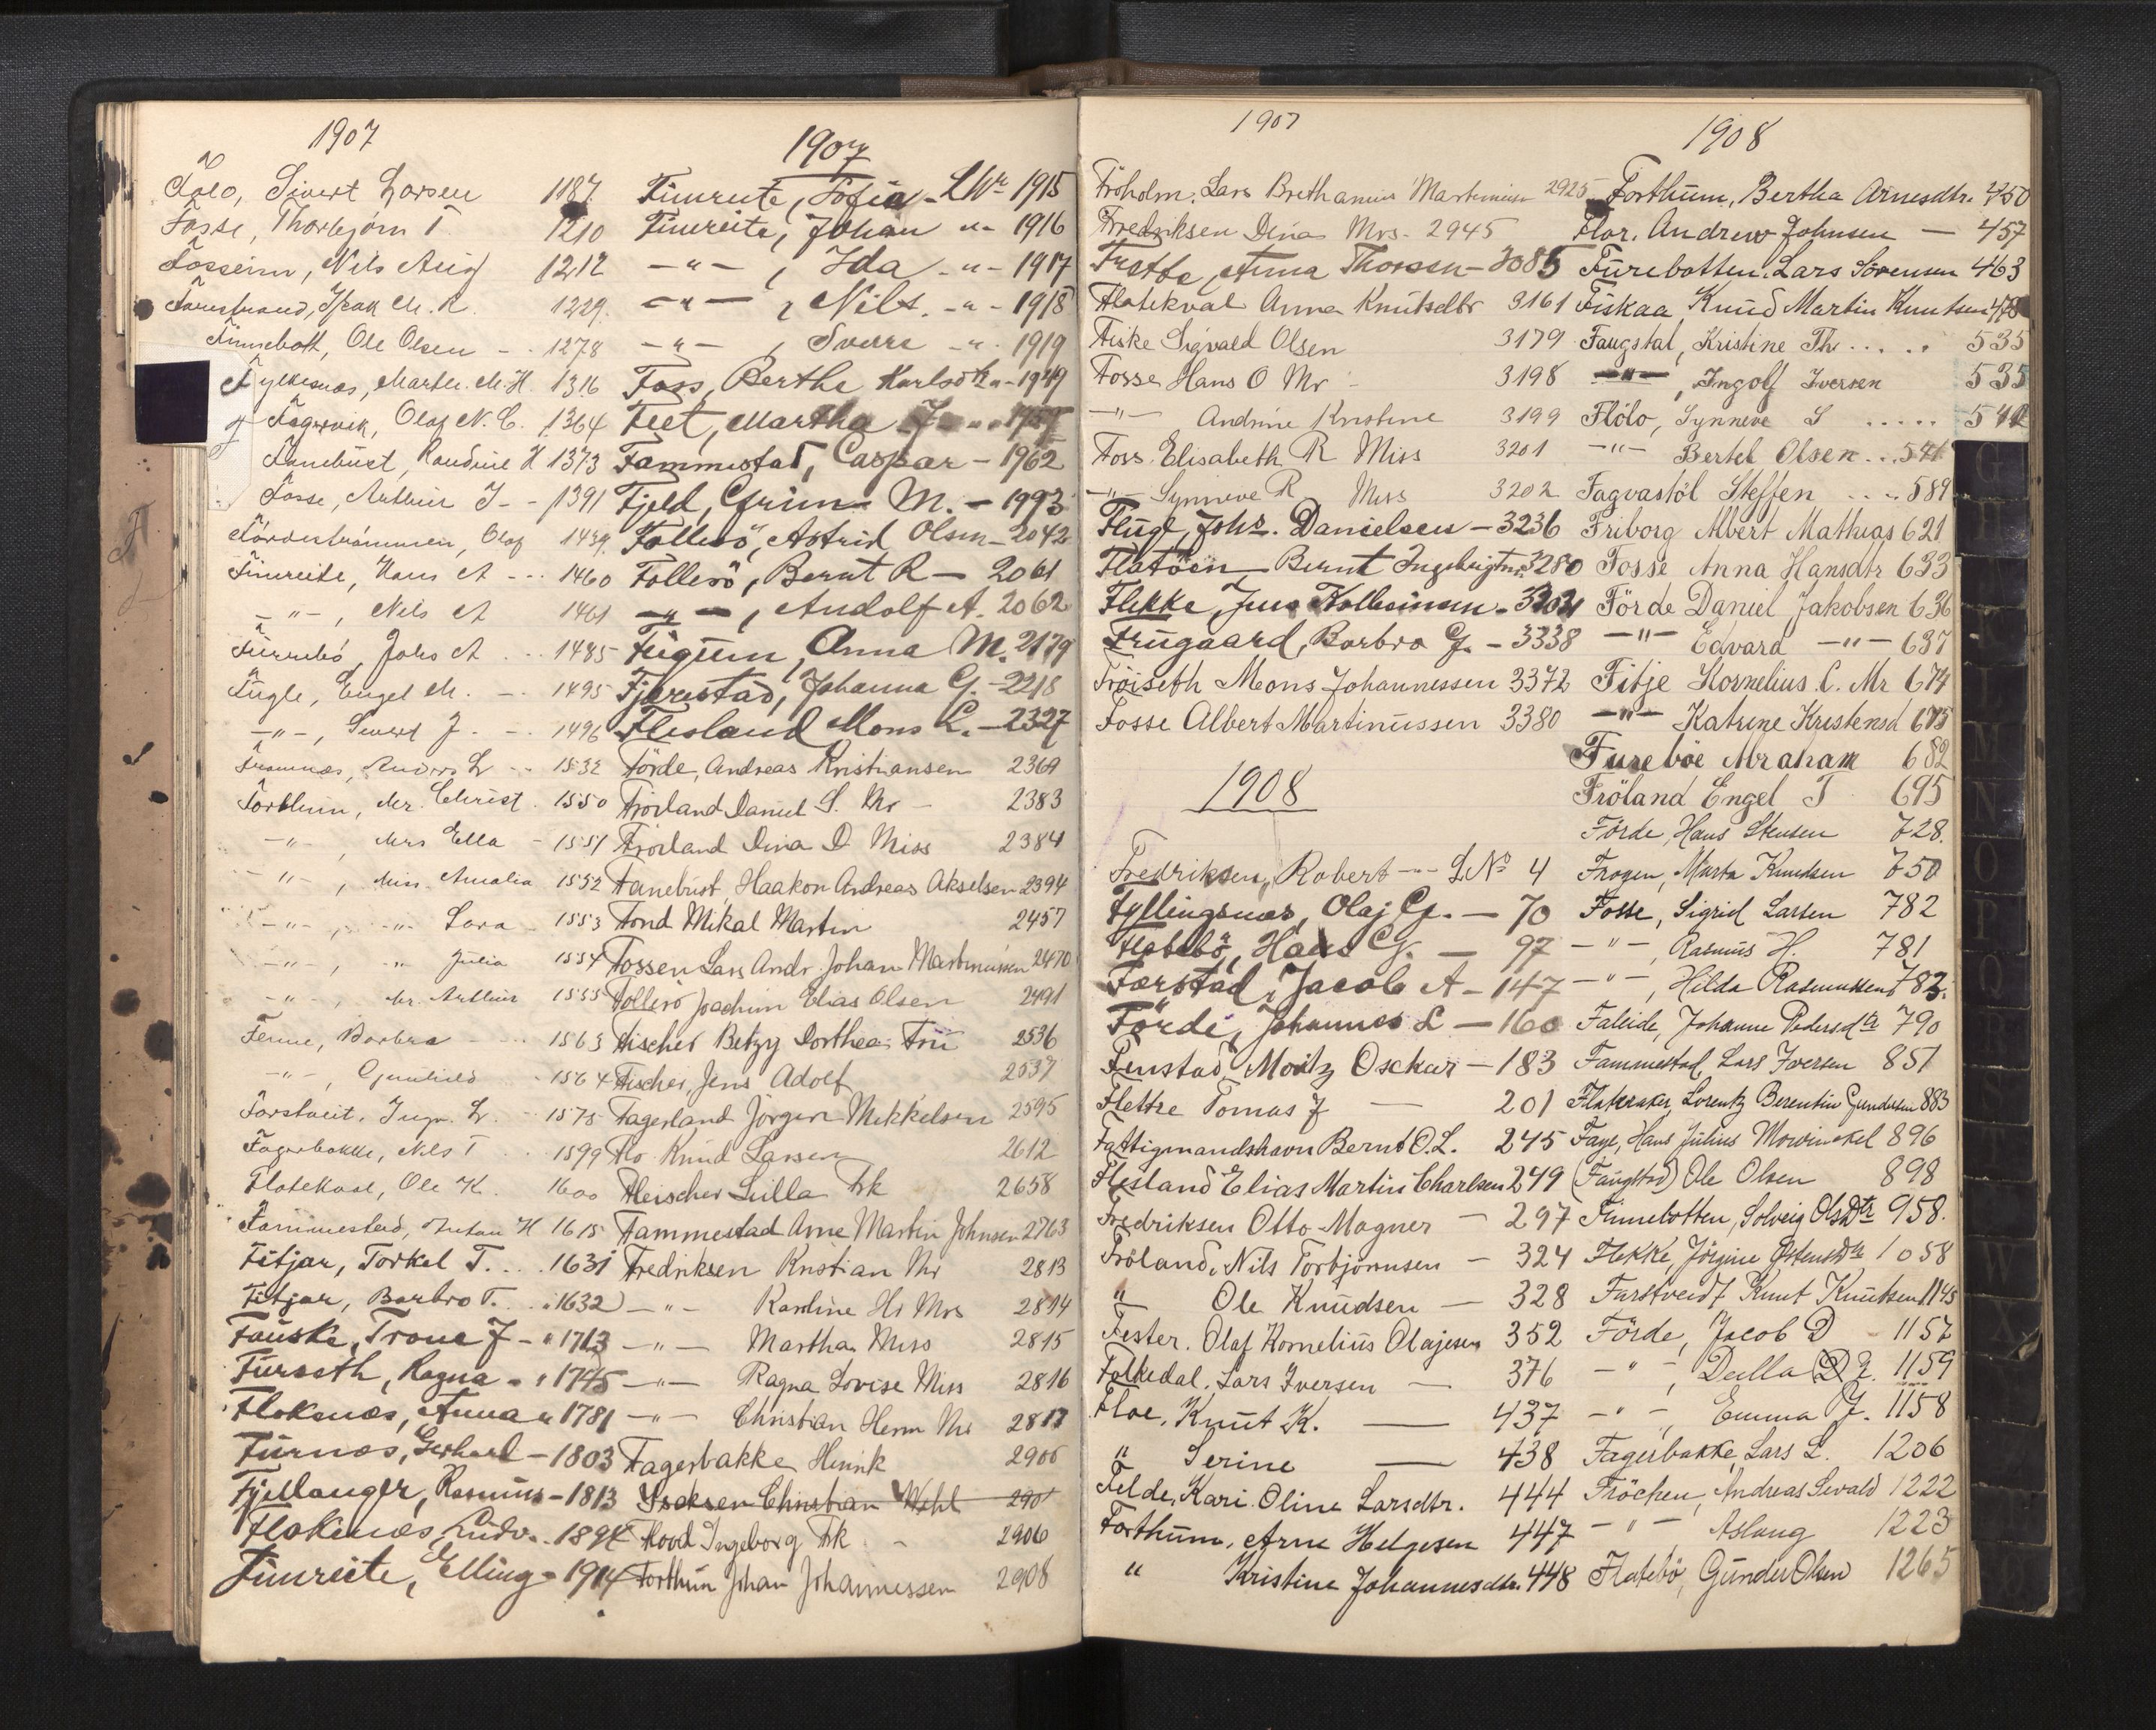 1907
Folo, Sivert Larsen 1187
Fosse, Thorbjørn T. 1210
Fosseim, Nils Aug 1212
Isak M. R. 1229
Finnebott, Ole Olsen - - 1278
Fylkesnæs, Marta M. H. 1316
Fagervik, Olaf N. C. 1364
Fanebust, Raudine H 1373
Fosse, Arthur J - - 1391
Førdestrømmen, Olaf 1439
Fimreite, Hans A - - - 1460
- " - , Nils A 1461
Furrebø, Johs A . . . 1485
Fugle, Engel M. - . - 1495
- " - , Sivert J. - - 1496
Framnæs, Anders L - - 1532
Forthun, Mr. Christ. 1550
- " - , Mrs Ella - 1551
- " - , Miss Amalia 1552
- " - , - " - Lara - 1553
- " - , " Julia 1554
- " - , Mr. Arthur 1555
Fenne, Barbra - - - 1563
- " - , Gunhild - 1564
Farstveit, Inga L. - 1575
Fagerbakke, Nils T . . 1599
Flatekval, Ole K. 1600
Fammestad, Anton H 1615
Fitjar, Torkel T. . . . 1631
Fitjar, Barbro T. . . " 1632
Fauske, Trone J - " 1713
Furseth, Ragna - " 1745
Floknæs, Anna " 1781
Furnæs, Gerhard - 1803
Fjellanger, Rasmus - 1813
Floknæs, Ludv. - 1894
Fimreite, Elling - 1914
1907
Fimreite, Sofia - LNr 1915
Fimreite, Johan " - 1916
- " - , Ida - " - 1917
- " - , Nils. - " - 1918
- " - , Sverre - " - 1919
Foss, Berthe Karlsdtr " - 1949
Feet, Martha
Fammestad, Caspar - 1962
Fjeld, Grim M. - 1993
Follesö, Astrid Olsen - 2042
Follesö, Bernt R - 2061
- " - , Andolf A. 2062
Fugum, Anna M. 2179
Fjærestad, Johanna G. - 2218
Flesland Mons L. - 2327
Förde, Andreas Kristiansen 2369
Fröiland Daniel S. Mr - 2383
Fröiland Dina D Miss 2384
Fanebust, Haakon Andreas Akselsen 2394
Fond Mikal Martin 2457
Fossen Lars Andr. Johan Martinusen 2470
Follesö Joachim Elias Olsen 2491
Fischer Betzy Dorthea Fru 2536
Fischer, Jens Adolf 2537
Fagerland Jörgen Mikkelsen 2595
Flo Knud Larsen 2612
Fleischer Lulla Frk 2658
Fammestad Arne Martin Johnsen 2763
Fredriksen Kristian Mr 2813
- " - Karoline Hr Mrs 2814
- " - Martha Miss 2815
- " - Ragna Lovise Miss 2816
- " - Christian Herm Mr 2817
Fagerbakke Henrik 2900
Isaksen Christian Wehl 2901
Flood Ingeborg Frk - 2906
Forthun Johan Johannessen 2908
1907
Fröholm, Lars Brethanius Martinius 2925
Fredriksen Dina Mrs - 2945
Frette, Anna Thorsen - 3085
Flatekval Anna Knutsdtr 3161
Fiske Sigvald Olsen 3179
Fosse Hans O Mr - 3198
- " - Andrine Kristine 3199
Foss Elisabeth R Miss 3201
- " - Synneve R Miss 3202
Fluge, Johs. Danielsen - 3236
Flatöen Bernt Ingebrigtsn. 3280
Flekke, Jens
Frugaard, Barbro G. - 3338
Fröiseth Mons Johannessen 3372
Fosse Albert Martinussen 3380
1908
Fredriksen, Robert - - LNo 4
Fyllingsnes, Olaj G. - 70
Flatebö, Hans G. - 97
Farstad, Jacob A - 147
Förde, Johannes L - 160
Fenstad Moritz Osckar - 183
Flettre Tomas J - 201
Fattigmandshavn Bernt O. L. 245
Flesland Elias Martin Charlsen 249
Fredriksen Otto Magner - 297
Fröland, Nils Torbjörnsen - 324
" Ole Knudsen - 328
Fester, Olaf Kornelius Olajesen 352
Folkedal, Lars Iversen - 376
Floe, Knut K. - 437
" Serine - 438
Felde, Kari Oline Larsdtr. 444
Forthum, Arne Helgesen 447
" Kristine Johannesdtr. 448
1908
Forthum, Bertha Arnesdtr. 450
Flor, Andrew Johnsen - 457
Furebotten, Lars Sörensen 463
Fiskaa, Knud Martin Knutsen 478
Faugstal, Kristine Th . . . . . 535
- " - , Ingolf Iversen 535
Flölo, Synneve S . . . . . 541
- " - Bertel Olsen . . . 541
Fagvastöl Steffen . . . 589
Friborg Albert Mathias 621
Fosse Anna Hansdtr 633
Förde Daniel Jakobsen 636
- " - Edvard - " - 637
Fitje Kornelius C. Mr 674
- " - Katrine Kristensd 675
Furebøe Abraham 682
Fröland Engel T 695
Förde, Hans Stensen 728.
Frogen, Marta Knudsen 750
Fosse, Sigrid Larsen 782
- " - , Rasmus H. 781
- " - , Hilda Rasmussen 783.
Faleide, Johanne Pedersdtr 790
Fammestad, Lars Iversen 851
Flateraker, Lorentz Berentin Gundersen 883
Faye, Hans Julius Mowinckel 896
(Faugstad) Ole Olsen 898
Finnebotten, Solveig Olsdtr 958.
Flekke, Jörgine Östensdtr 1058
Farstveidt Knut Knutsen 1145
Förde, Jacob D 1157
- " - , Della D J. 1159
- " - , Emma J. 1158
Fagerbakke, Lars L. 1206
Fröchen, Andreas Sevald 1222
- " - Aslaug 1223
Flatebö, Gunder Olsen 1265
G
H
I
M
N
O
P
Q
W
X